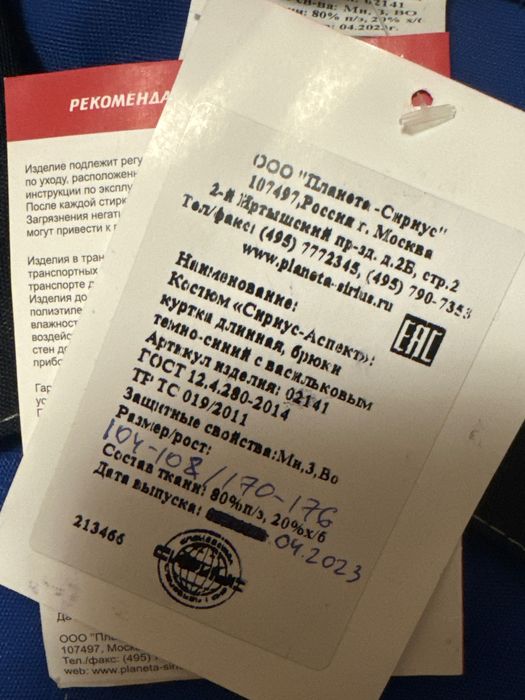 02141
св-ва: Ми, З, ВО
80% п/э, 20% х/б
04.2023г.
РЕКОМЕНДА
Изделие подлежит регу
по уходу, расположенн
инструкции по эксплу
После каждой стирк
Загрязнения негат
могут привести к
Изделия в тран
транспортных
транспорте
Изделия до
полиэтиле
влажност
воздейс
стен до
прибо
Гар
ус
ООО "Планета-Сириус"
107497,Россия г. Москва
2-й Иртышский пр-зд. д.2Б, стр.2
Тел/факс: (495) 7772345, (495) 790-7353
www.planeta-sirius.ru
Наименование:
Костюм «Сириус-Аспект»:
куртка длинная, брюки
темно-синий с васильковым
Артикул изделия: 02141
ГОСТ 12.4.280-2014
ТР ТС 019/2011
Защитные свойства:Ми,З,Во
Размер/рост:
104-108/170-176
Состав ткани: 80%п/э, 20%х/б
Дата выпуска: 04.2023
EAC
213466
Да
ООО "Пла
107497, Моск
Тел./факс: (495)
web: www.planeta-siri